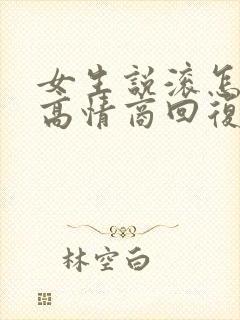 女生說滚怎
高情商回復
林空白